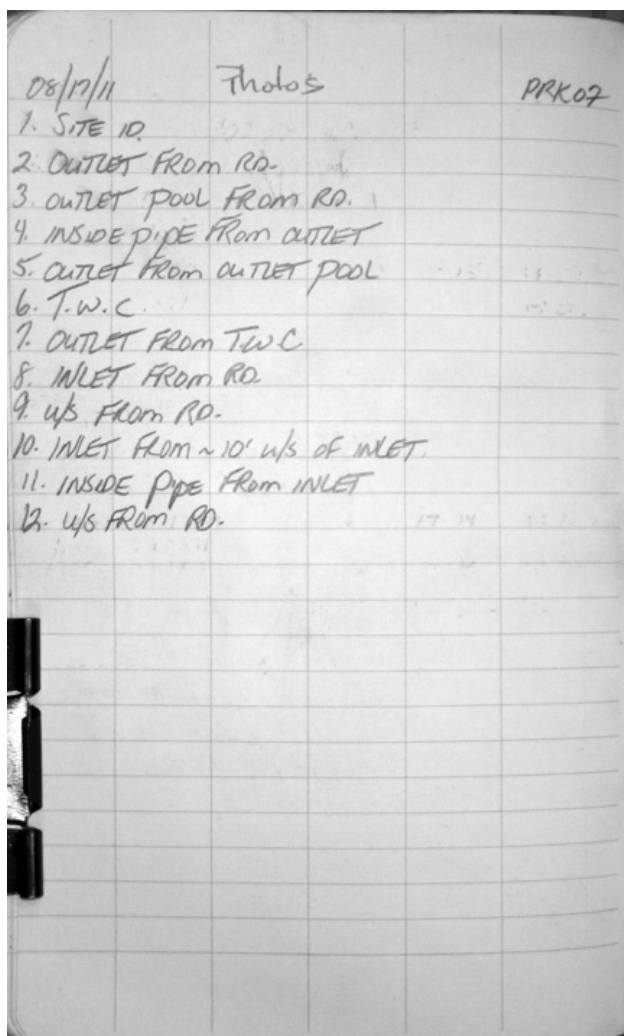 08/17/11 Photos PRK07
1. SITE ID.
2. OUTLET FROM RD.
3. OUTLET POOL FROM RD.
4. INSIDE PIPE FROM OUTLET
5. OUTLET FROM OUTLET POOL
6. T.W.C.
7. OUTLET FROM TWC
8. INLET FROM RD.
9. U/S FROM RD.
10. INLET FROM ~ 10' U/S OF INLET.
11. INSIDE PIPE FROM INLET
12. U/S FROM RD.